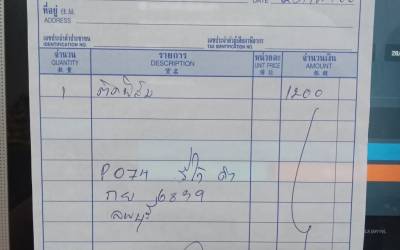 ที่อยู่ 住址
ADDRESS
DATE
เลขประจำตัวประชาชน
IDENTIFICATION NO.
เลขประจำตัวผู้เสียภาษีอากร
TAX IDENTIFICATION NO.
จำนวน รายการ หน่วยละ จำนวนเงิน
QUANTITY DESCRIPTION UNIT PRICE AMOUNT
數量 貨名 單價 銀額
1 ติดฟิล์ม 1200
P074 รีโว่ ดำ
กย 6839
ลพบุรี